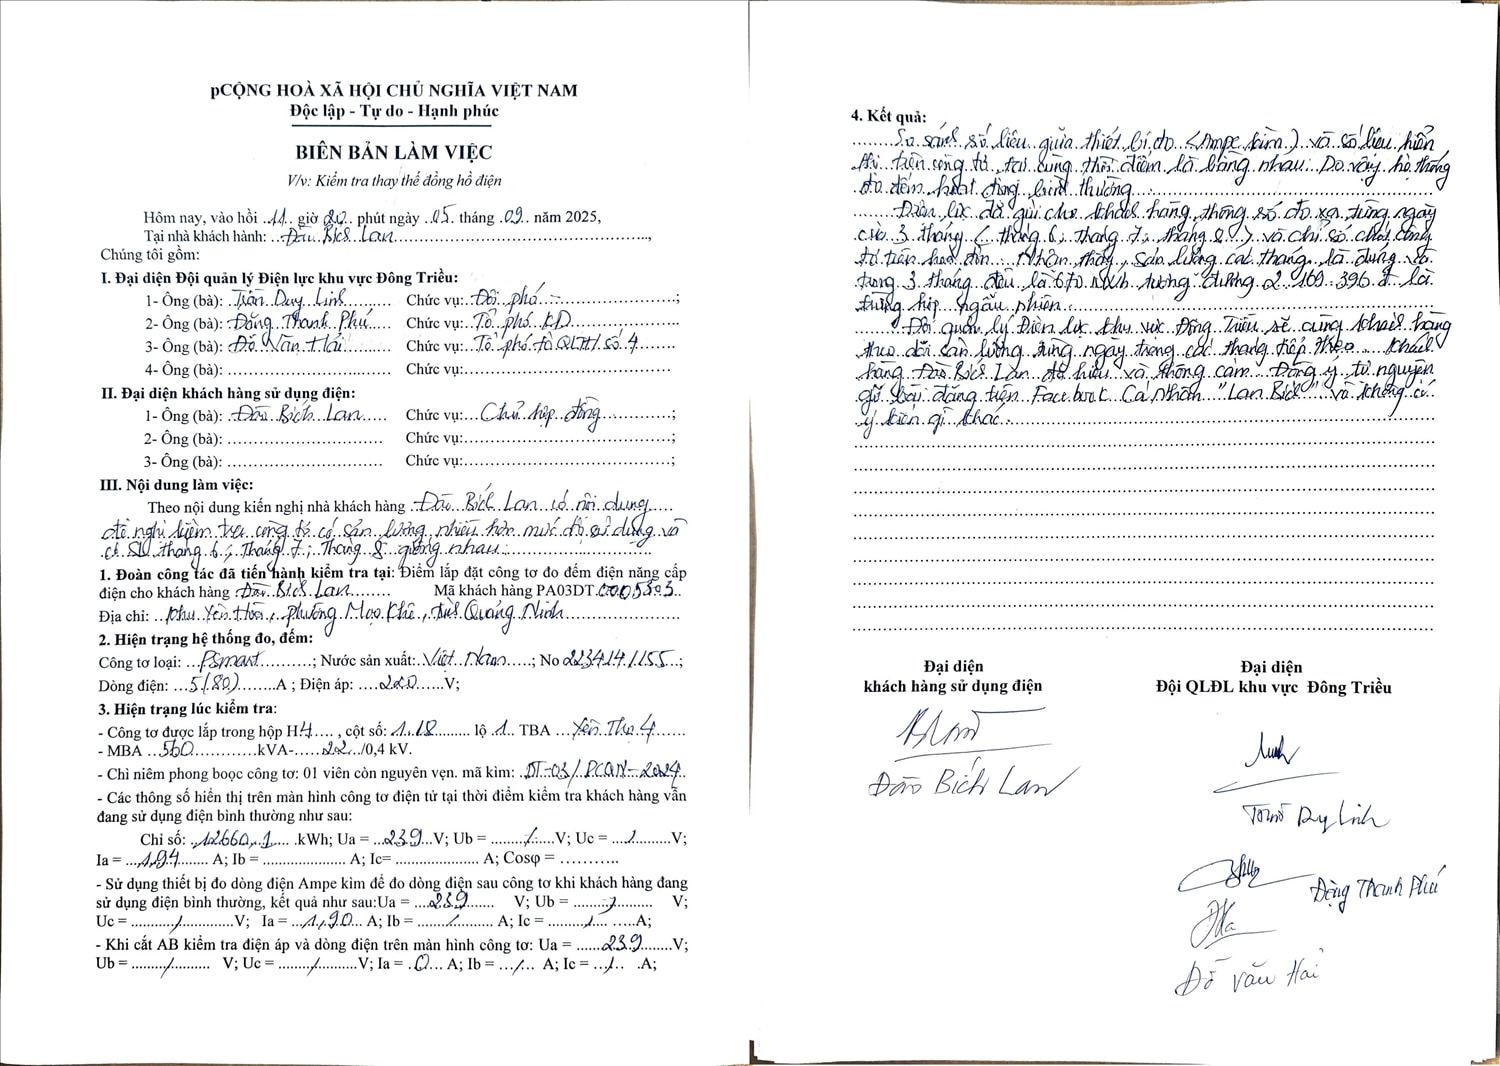 pCỘNG HOÀ XÃ HỘI CHỦ NGHĨA VIỆT NAM
Độc lập - Tự do - Hạnh phúc
BIÊN BẢN LÀM VIỆC
V/v: Kiểm tra thay thế đồng hồ điện
Hôm nay, vào hồi 11 giờ 20 phút ngày 05 tháng 09 năm 2025,
Tại nhà khách hành: Đào Bích Lan
Chúng tôi gồm:
I. Đại diện Đội quản lý Điện lực khu vực Đông Triều:
1- Ông (bà): Trần Duy Linh Chức vụ: Đội phó ;
2- Ông (bà): Đặng Thanh Phú Chức vụ: Tổ phó KD
3- Ông (bà): Đỗ Văn Hải Chức vụ: Tổ phó tổ QLTH số 4
4- Ông (bà): Chức vụ:
II. Đại diện khách hàng sử dụng điện:
1- Ông (bà): Đào Bích Lan Chức vụ: Chủ hợp đồng ;
2- Ông (bà): Chức vụ: ;
3- Ông (bà): Chức vụ: ;
III. Nội dung làm việc:
Theo nội dung kiến nghị nhà khách hàng Đào Bích Lan có nội dung
đề nghị kiểm tra công tơ có sản lượng nhiều hơn mức độ sử dụng và
có SL tháng 6; Tháng 7; Tháng 8 giống nhau.
1. Đoàn công tác đã tiến hành kiểm tra tại: Điểm lắp đặt công tơ đo đếm điện năng cấp
điện cho khách hàng Đào Bích Lan Mã khách hàng PA03DT.0005393
Địa chỉ: Khu Yên Hòa, phường Mạo Khê, tỉnh Quảng Ninh
2. Hiện trạng hệ thống đo, đếm:
Công tơ loại: Psmart ; Nước sản xuất: Việt Nam ; No 2234141155 ;
Dòng điện: 5(80) A ; Điện áp: 220 V;
3. Hiện trạng lúc kiểm tra:
- Công tơ được lắp trong hộp H4 , cột số: 1.18 lộ 1 TBA Yên Thọ 4
- MBA 560 kVA- 22 /0,4 kV.
- Chì niêm phong booc công tơ: 01 viên còn nguyên vẹn. mã kìm: ĐT-03/PCQN-2024
- Các thông số hiển thị trên màn hình công tơ điện tử tại thời điểm kiểm tra khách hàng vẫn
đang sử dụng điện bình thường như sau:
Chỉ số: 12660,1 kWh; Ua = 239 V; Ub = / V; Uc = / V;
Ia = 1,94 A; Ib = A; Ic= A; Cosφ =
- Sử dụng thiết bị đo dòng điện Ampe kìm để đo dòng điện sau công tơ khi khách hàng đang
sử dụng điện bình thường, kết quả như sau:Ua = 239 V; Ub = / V;
Uc = / V; Ia = 1,90 A; Ib = / A; Ic = / A;
- Khi cắt AB kiểm tra điện áp và dòng điện trên màn hình công tơ: Ua = 239 V;
Ub = / V; Uc = / V; Ia = 0 A; Ib = / A; Ic = / A;
4. Kết quả:
So sánh số liệu giữa thiết bị đo (Ampe kìm) và số liệu hiển
thị trên công tơ tại cùng thời điểm là bằng nhau. Do vậy hệ thống
đo đếm hoạt động bình thường.
Điện lực đã gửi cho khách hàng thông số đo xa từng ngày
của 3 tháng (tháng 6; tháng 7; tháng 8) và chỉ số chốt công
tơ trên hoá đơn. Nhận thấy sản lượng các tháng là đúng và
trong 3 tháng đều là 670 kWh tương đương 2.169.396 đ là
trùng hợp ngẫu nhiên.
Đội quản lý Điện lực khu vực Đông Triều sẽ cùng khách hàng
theo dõi sản lượng từng ngày trong các tháng tiếp theo. Khách
hàng Đào Bích Lan đã hiểu và thông cảm. Đồng ý, tự nguyện
gỡ bài đăng trên Facebook cá nhân "Lan Bích" và không có
ý kiến gì khác.
Đại diện
khách hàng sử dụng điện
Đào Bích Lan
Đại diện
Đội QLĐL khu vực Đông Triều
Trần Duy Linh
Đặng Thanh Phú
Đỗ Văn Hải